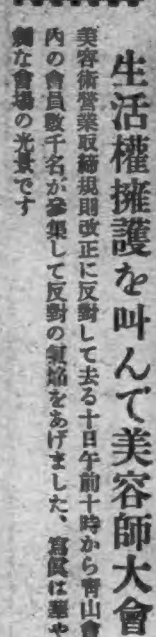 生活權擁護を叫んで美容師大會
美容術營業取締規則改正に反對して去る十日午前十時から靑山會
內の會員數千名が參集して反對の氣焰をあげました、寫眞は華や
な會場の光景です